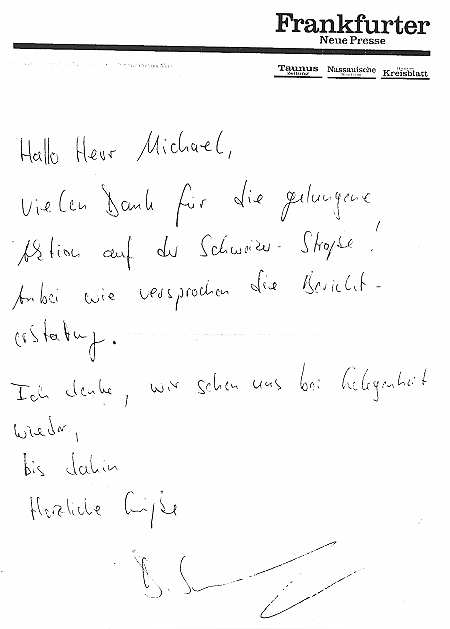 Frankfurter
Neue Presse
Taunus Zeitung Nassauische Höchster Kreisblatt
Hallo Herr Michael,
vielen Dank für die gelungene
Aktion auf der Schweizer-Straße!
Anbei wie versprochen die Bericht-
erstattung.
Ich denke, wir sehen uns bei Gelegenheit
wieder,
bis dahin
Herzliche Grüße